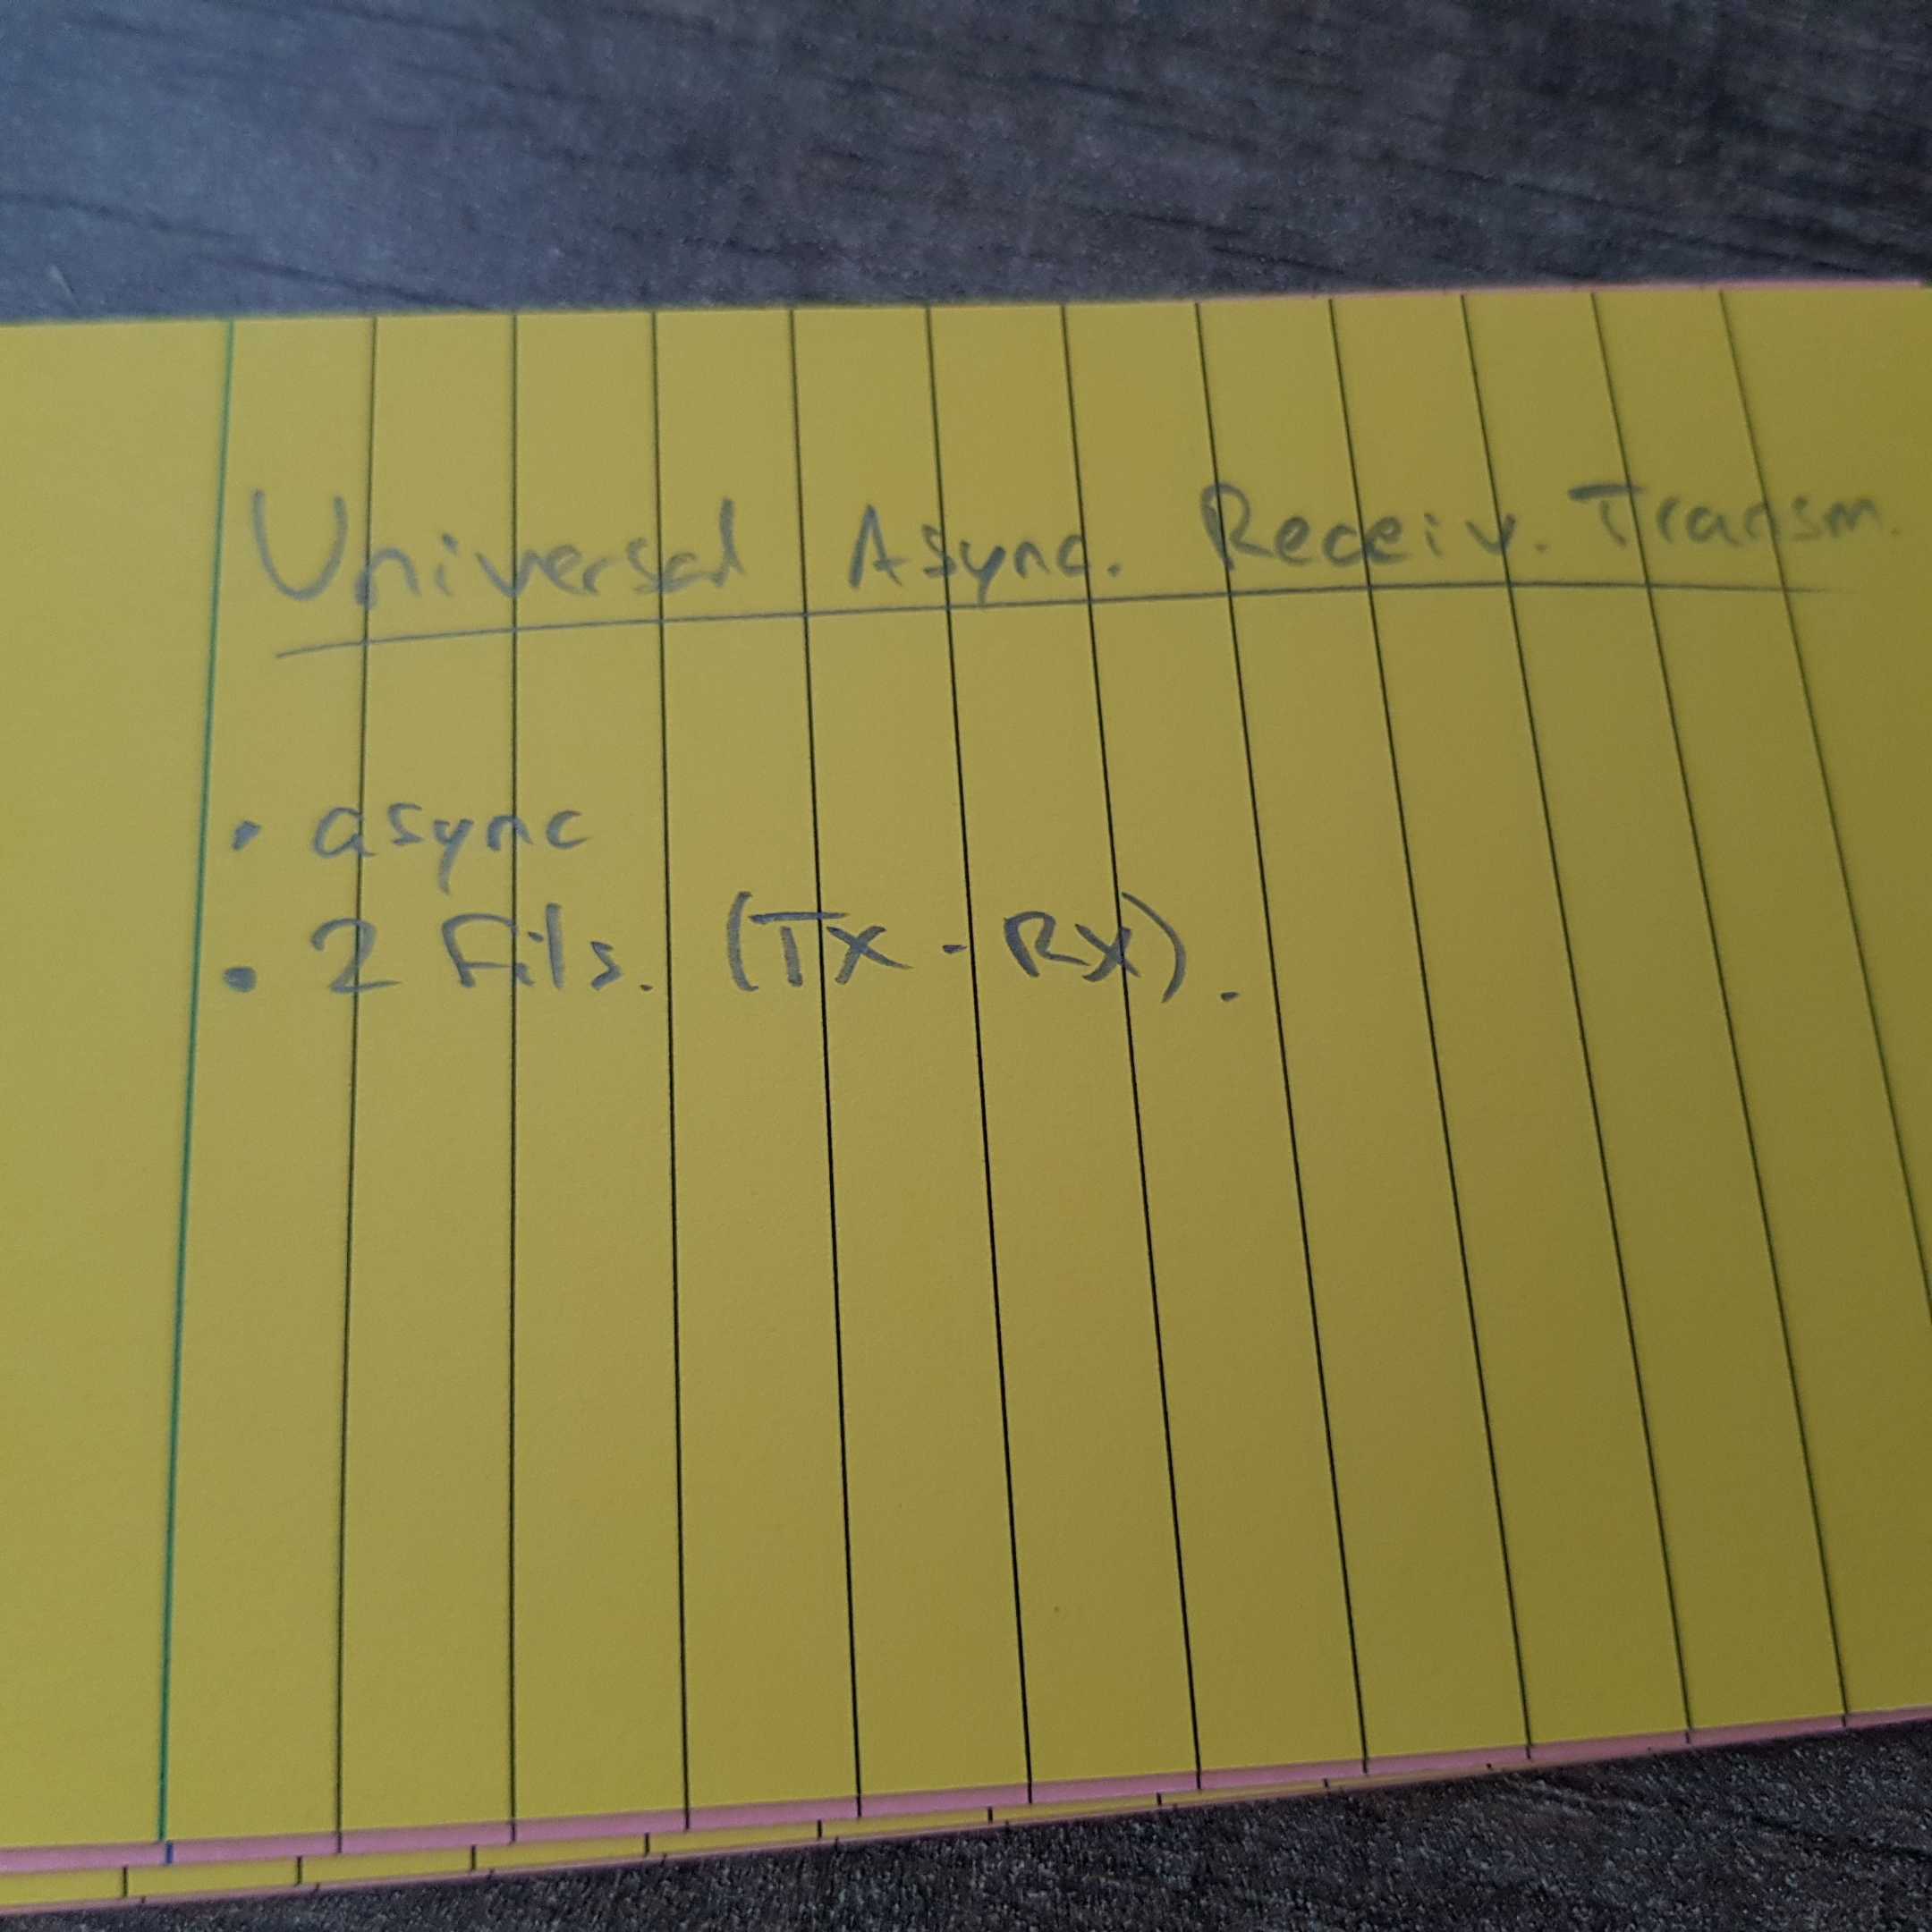 Universal Async. Receiv. Transm.
• async
• 2 Fils. (Tx - Rx).